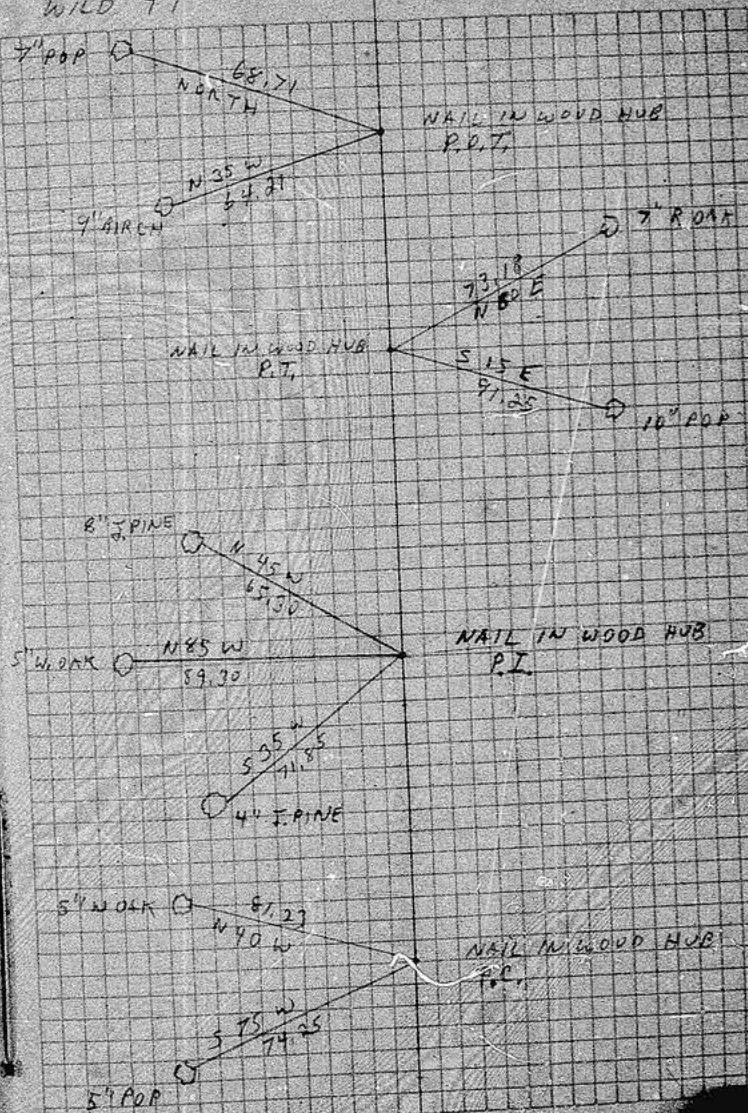 WILD T1
7" POP
68.71
NORTH
NAIL IN WOOD HUB
P.O.T.
N 35 W
54.21
9" BIRCH
7" R OAK
73.18
N 60 E
NAIL IN WOOD HUB
P.T.
S 15 E
91.25
10" POP
8" J. PINE
N 45 W
65.30
5" W. OAK
N 85 W
89.30
NAIL IN WOOD HUB
P.I.
S 35 W
71.85
4" J. PINE
5" W OAK
81.23
N 40 W
NAIL IN WOOD HUB
P.C.
S 75 W
74.25
5" POP